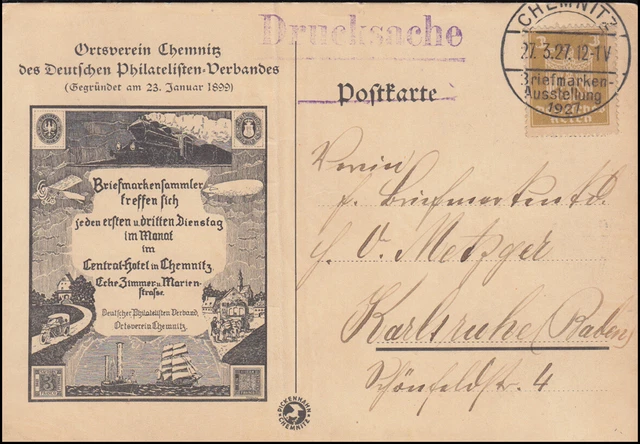 Ortsverein Chemnitz
des Deutschen Philatelisten-Verbandes
(Gegründet am 23. Januar 1899)
Briefmarkensammler
treffen sich
jeden ersten u. dritten Dienstag
im Monat
im
Central-Hotel in Chemnitz
Ecke Zimmer u. Marien-
straße.
Deutscher Philatelisten Verband
Ortsverein Chemnitz
3
DICKENHAHN
CHEMNITZ
Drucksache
Postkarte
CHEMNITZ
27.3.27. 12-1 V
Briefmarken-
Ausstellung
1927
3
3
REICH
Verein
f. Briefmarkenkd.
O. Metzger
Karlsruhe (Baden)
Schönfeldstr. 4